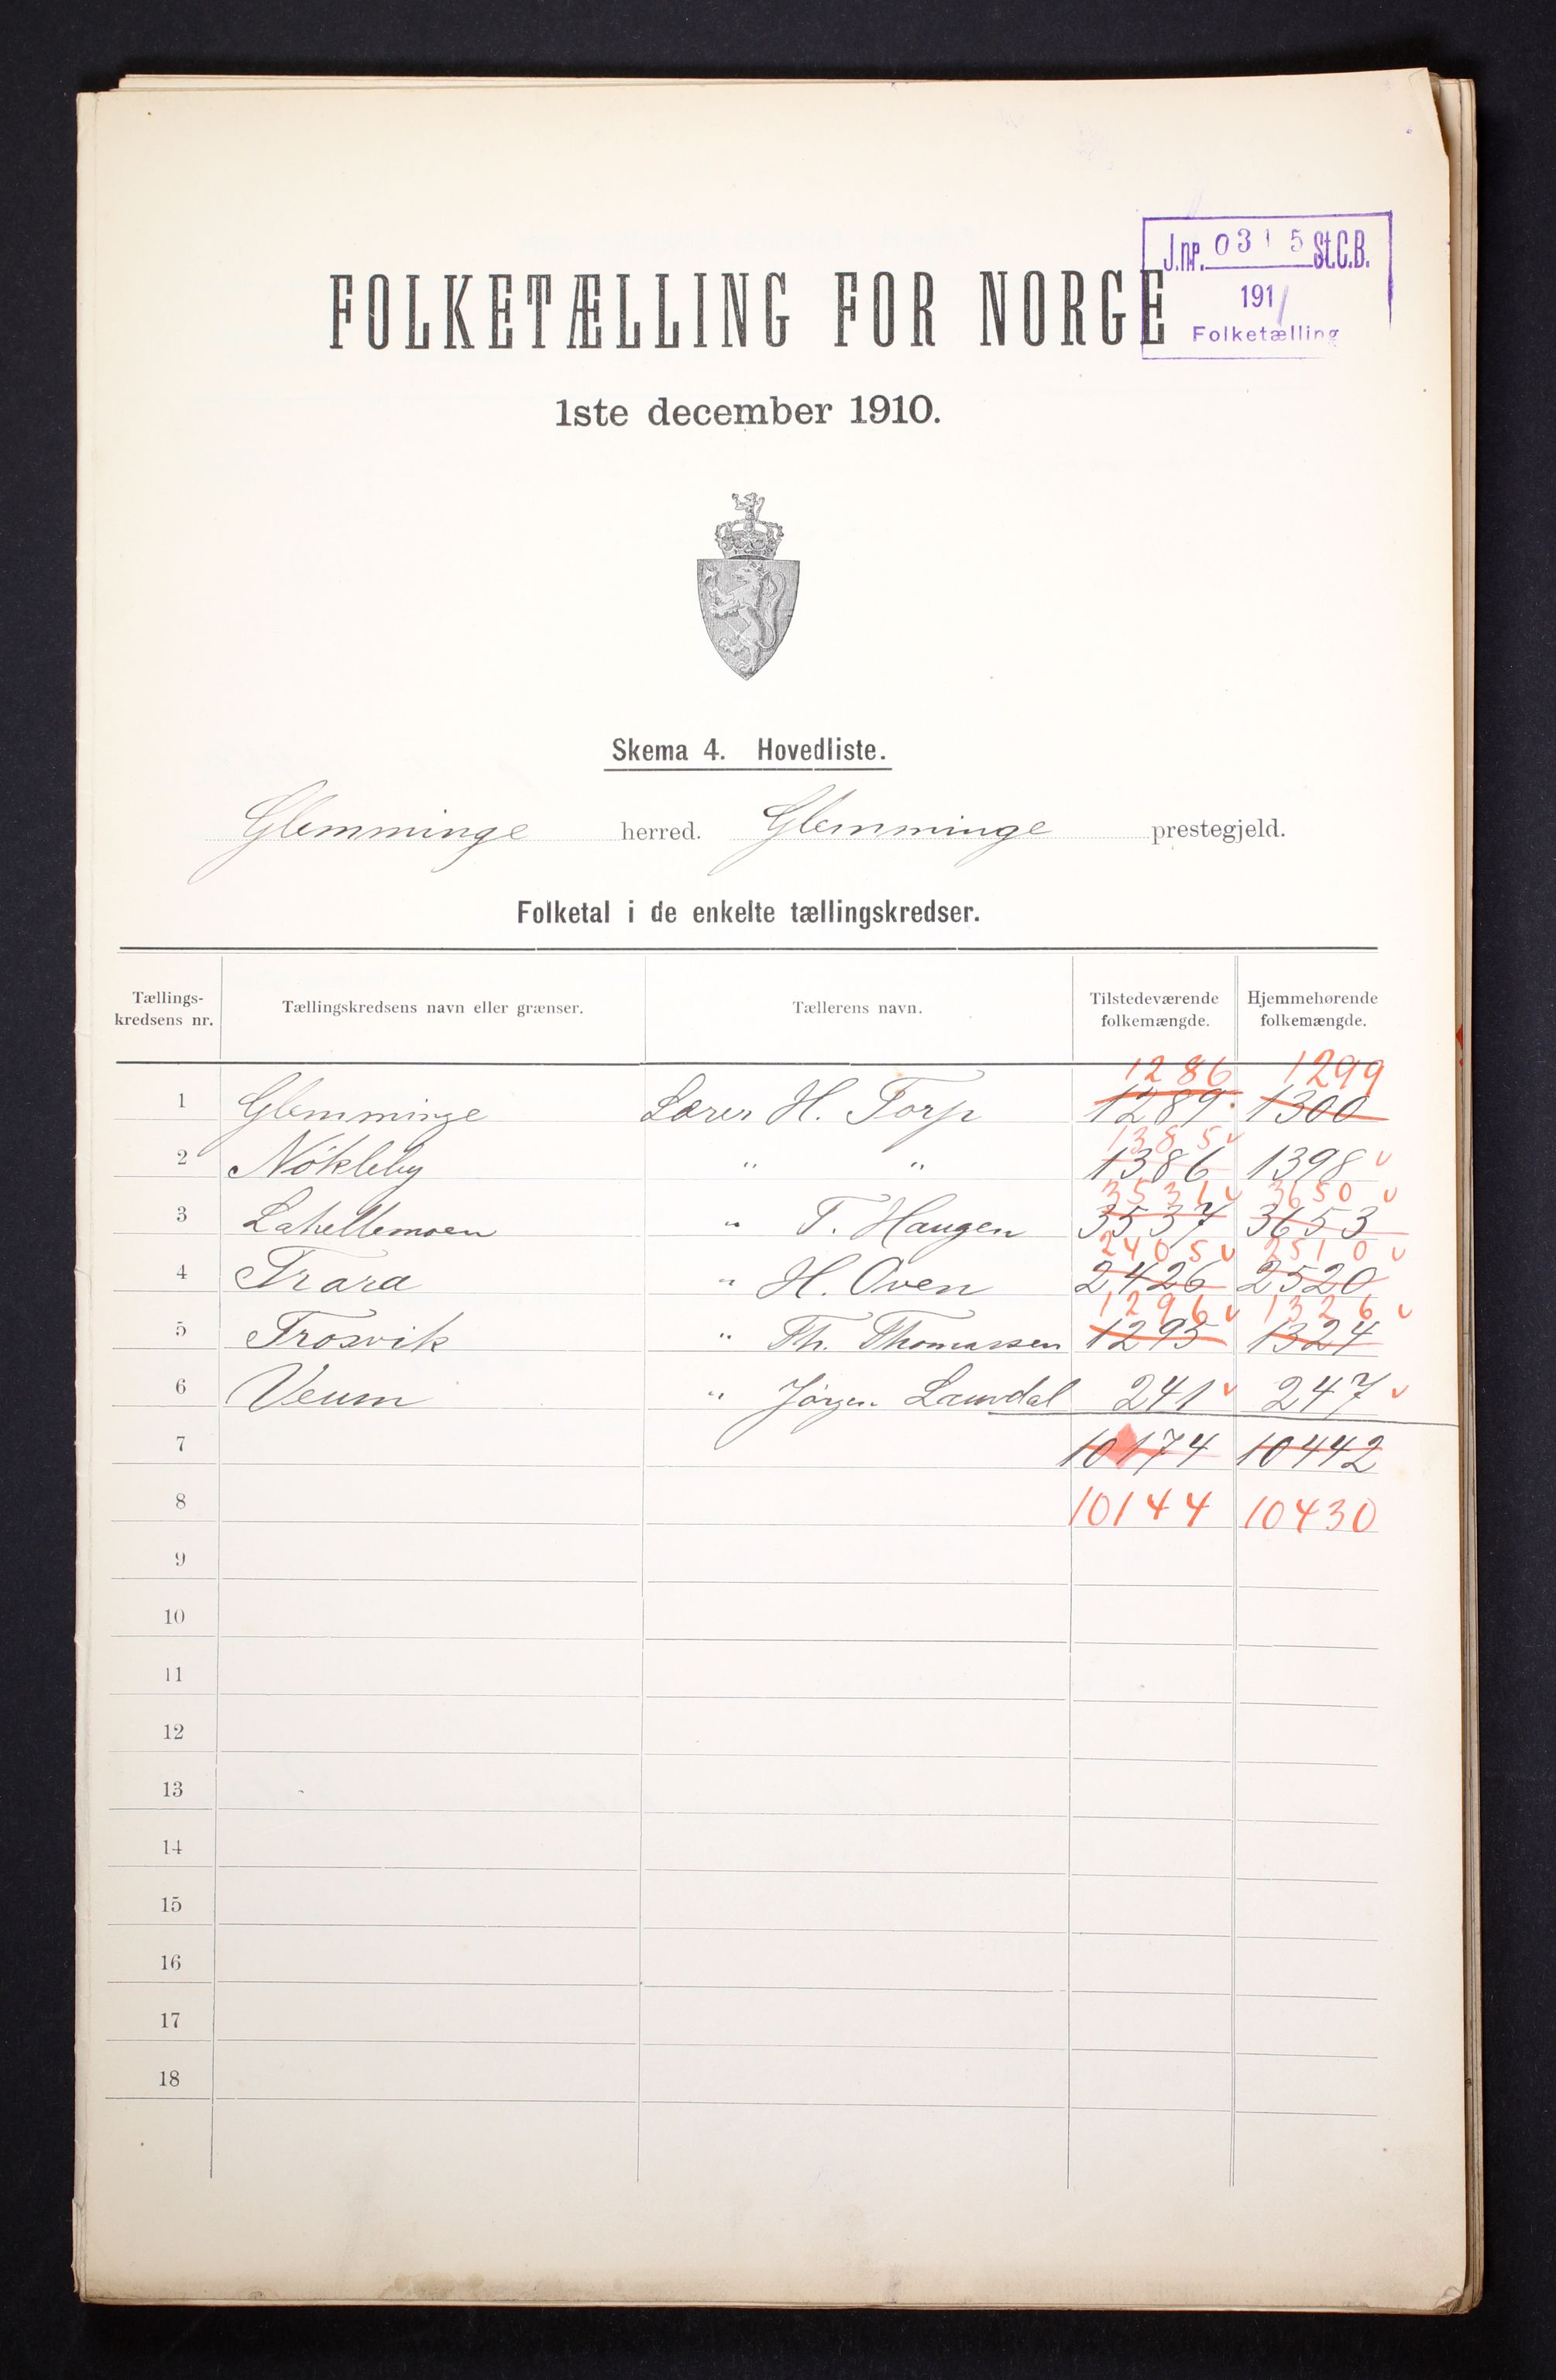 J.nr. 0315 St.C.B.
191/
Folketælling
FOLKETÆLLING FOR NORGE
1ste december 1910.
Skema 4. Hovedliste.
Glemminge herred. Glemminge prestegjeld.
Folketal i de enkelte tællingskredser.
Tællings-kredsens nr. Tællingskredsens navn eller grænser. Tællerens navn. Tilstedeværende folkemængde. Hjemmehørende folkemængde.
1286 1299
1 Glemminge Lærer H. Torp 1289 1300
1385 v
2 Nökleby " " 1386 1398 v
3531 v 3650 v
3 Lahellemoen " T. Haugen 3537 3653
2405 v 2510 v
4 Trara " H. Oven 2426 2520
1296 v 1326 v
5 Trosvik " Th. Thomassen 1295 1324
6 Veum " Jörgen Lamdal 241 v 247 v
7 10174 10442
8 10144 10430
9
10
11
12
13
14
15
16
17
18